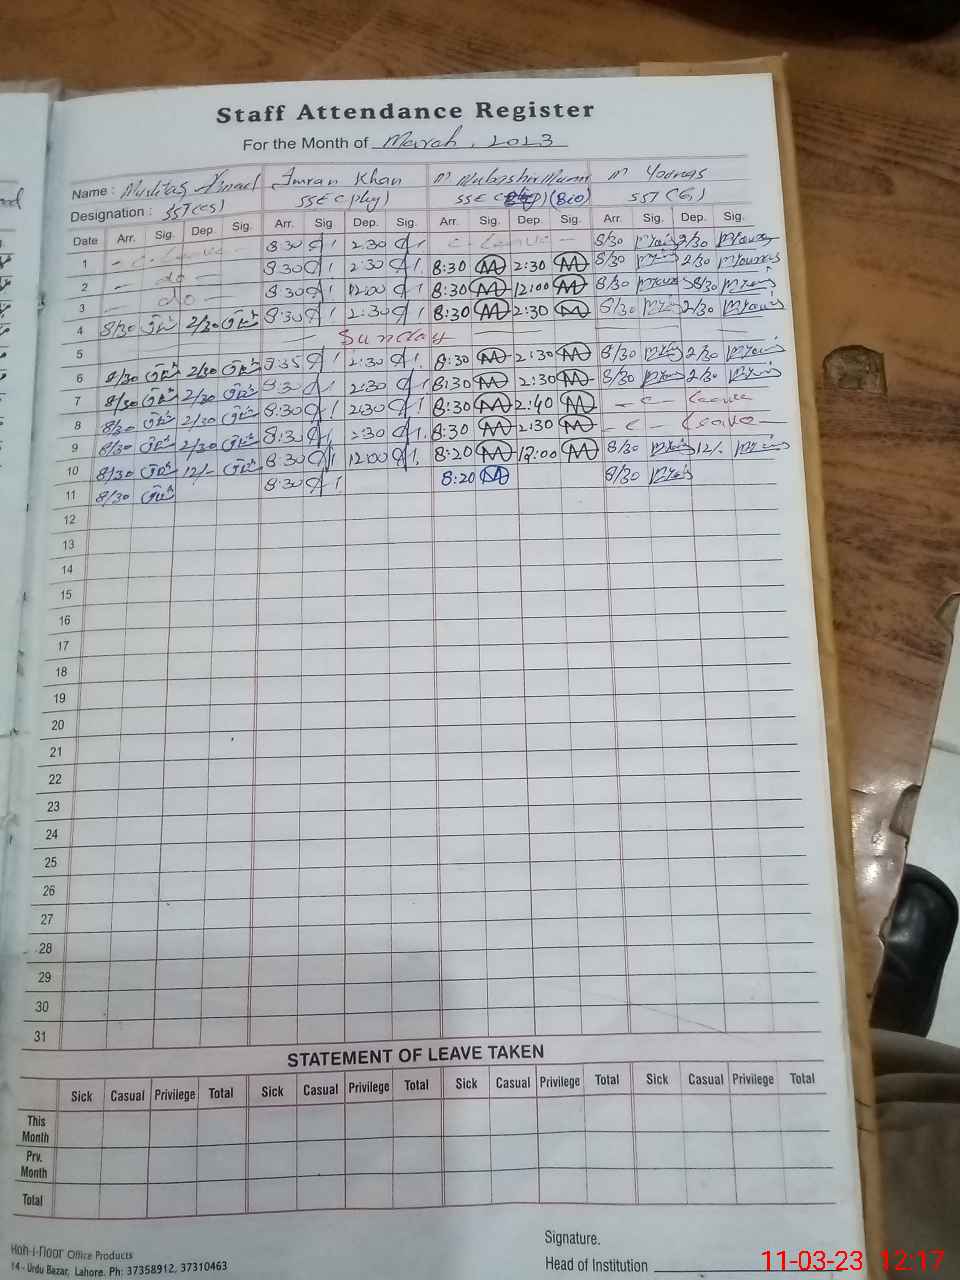 Staff Attendance Register
For the Month of March, 2023
Name : Ahmad Imran Khan M Mubashir M Younas
Designation : SST(CS) SSE (Phy) SSE (Bio) SST(G)
Date Arr. Sig. Dep. Sig. Arr. Sig. Dep. Sig. Arr. Sig. Dep. Sig. Arr. Sig. Dep. Sig.
1 - C. Leave - 8:30 2:30 C. Leave - 8/30 2/30
2 - do - 8:30 2:30 8:30 2:30 8/30 2/30
3 - do - 8:30 12:00 8:30 12:00 8/30 8/30
4 8/30 2/30 8:30 2:30 8:30 2:30 8/30 2/30
5 Sunday
6 8/30 2/30 8:35 2:30 8:30 2:30 8/30 2/30
7 8/30 2/30 8:30 2:30 8:30 2:30 8/30 2/30
8 8/30 2/30 8:30 2:30 8:30 2:40 - C - Leave
9 8/30 2/30 8:30 2:30 8:30 2:30 - C - Leave -
10 8/30 12/- 8:30 12:00 8:20 12:00 8/30 12/-
11 8/30 8:30 8:20 8/30
12
13
14
15
16
17
18
19
20
21
22
23
24
25
26
27
28
29
30
31
STATEMENT OF LEAVE TAKEN
Sick Casual Privilege Total Sick Casual Privilege Total Sick Casual Privilege Total Sick Casual Privilege Total
This Month
Prv. Month
Total
Koh-i-Noor Office Products
14 - Urdu Bazar, Lahore. Ph: 37358912, 37310463
Signature.
Head of Institution
11-03-23 12:17